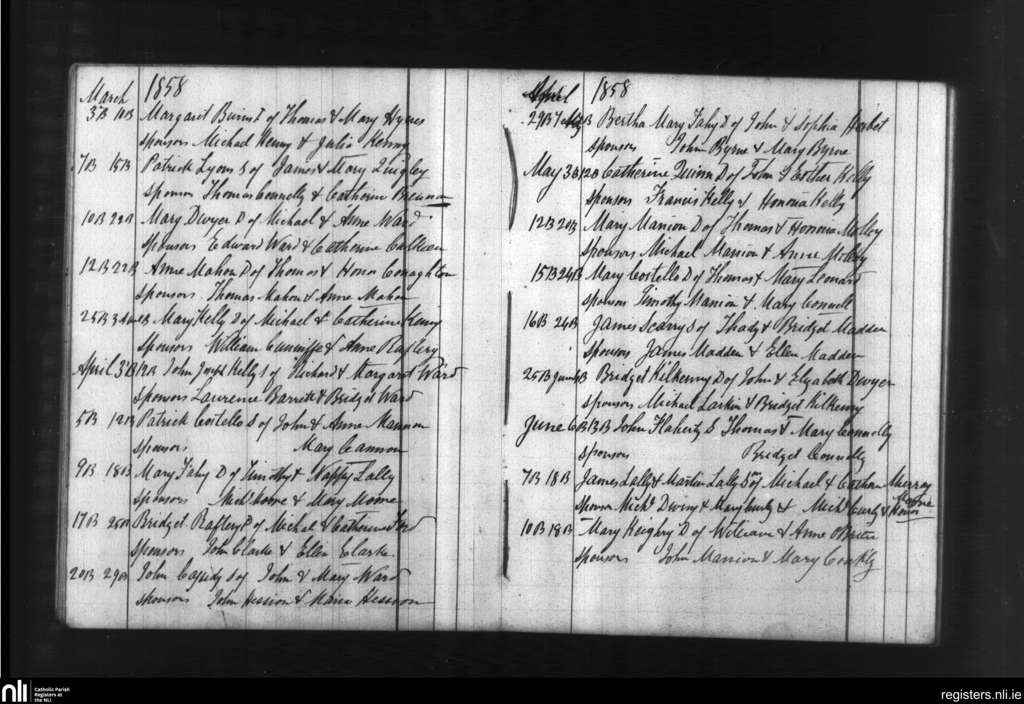 March 1858
3B 10B Margaret Burns D of Thomas & Mary Hynes
Sponsors Michael Henry & Julia Kenny
7B 15B Patrick Lyons S of James & Mary Quigley
Sponsors Thomas Connolly & Catherine Brennan
10B 22B Mary Dwyer D of Michael & Anne Ward
Sponsors Edward Ward & Catherine
12B 22B Anne Mahon D of Thomas & Honor Conaghton
Sponsors Thomas Mahon & Anne Mahon
25B Mary Kelly D of Michael & Catherine Kenny
Sponsors William Cunniffe & Anne Raftery
April 3B 12B John Joseph Kelly S of Richard & Margaret Ward
Sponsors Laurence Barrett & Bridget Ward
5B 12B Patrick Costello S of John & Anne Mannon
Sponsors Mary Cannon
9B 18B Mary Fahy D of Timothy & Nappy Lally
Sponsors & Mary Moore
17B 25B Bridget Raftery D of Michel & Catherine
Sponsors John Clarke & Ellen Clarke
20B 29B John Cassidy S of John & Mary Ward
Sponsors John Hession & Maria Hession
April 1858
29B 7 May B Bertha Mary Fahy D of John & Sophia Herbet
Sponsors John Byrne & Mary Byrne
May 3B 12B Catherine Quinn D of John & Esther Kelly
Sponsors Francis Kelly & Honoria Kelly
12B 20B Mary Manion D of Thomas & Honoria Molloy
Sponsors Michael Manion & Anne Molloy
15B 24B Mary Costello D of Thomas & Mary Leonard
Sponsors Timothy Manion & Mary Connell
16B 24B James Scarry S of Thady & Bridget Madden
Sponsors James Madden & Ellen Madden
25B June B Bridget Kilkenny D of John & Elizabeth Dwyer
Sponsors Michael Larkin & Bridget Kilkenny
June 6B 13B John Flaherty S Thomas & Mary Connolly
Sponsors Bridget Connolly
7B 18B James Lally & Martin Lally Sons of Michael & Murray
Sponsors Michl & Mary & Michl &
Honor
10B 18B Mary Keighry D of William & Anne OBrien
Sponsors John Manion & Mary
nli Catholic Parish
Registers at
the NLI
registers.nli.ie